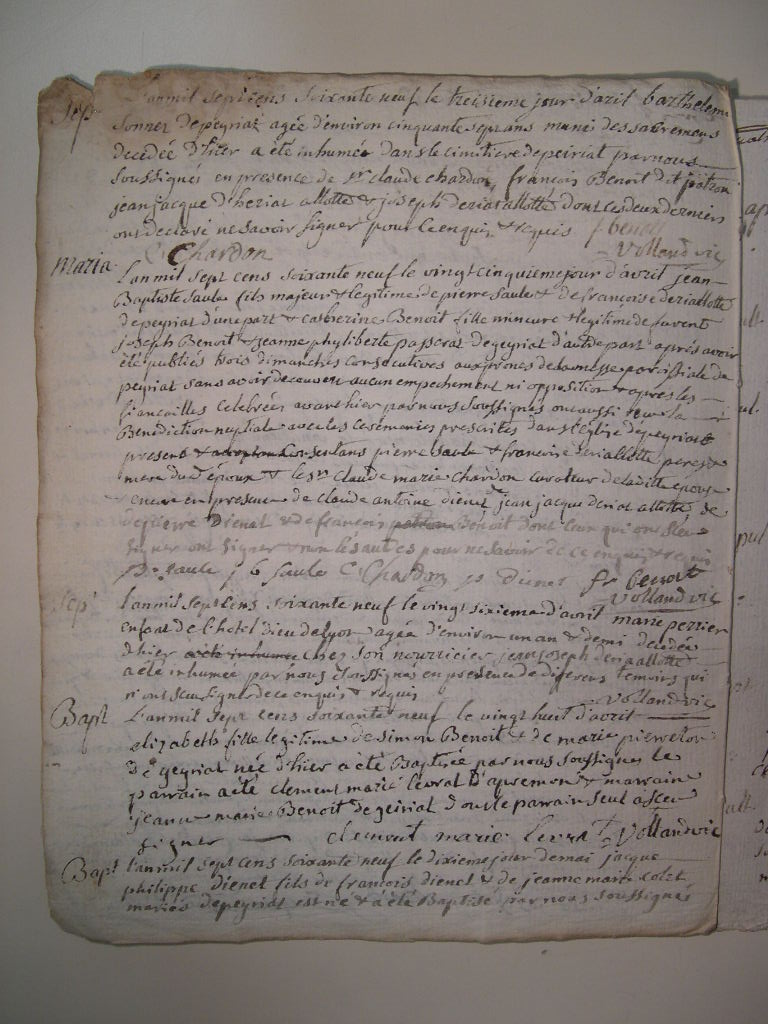 Sep^r
Lanmil sept cens soixante neuf le treisieme jour d'avril barthelem
Sonnet depeyriat agée d'environ cinquante sept ans munie des sacremens
decedée d'hier a été inhumée dans le cimitiere depeiriat par nous
soussignés en presence de s^r claude chardon, françois Benoit dit patron
jean jacque d'heriat allotte & joseph deriatallotte dont ces deux derniers
ont declaré ne savoir signer pour ce enquis & requis f benoit
C Chardon Vollandvic
Maria
Lanmil sept cens soixante neuf le vingt cinquieme jour d'avril jean
Baptiste saule fils majeur & legitime de pierre saule & de françoise deriallotte
depeyriat d'une part & catherine Benoit fille mineure & legitime de feu vent
joseph Benoit & jeanne phyliberte passerat de geyriat d'autre part après avoir
été publiés trois dimanches consécutives aux prones de la messe paroissiale de
peyriat sans avoir decouvert aucun empechement ni opposition & apres les
fiancailles celebrées avant hier par nous soussignés ont aussi reçu la
Benediction nuptiale avec les ceremonies prescrites dans l'Eglise depeyriat
presens & consentans pierre saule & françoise deriallotte pere &
mere du d^t époux & le s^r claude marie chardon curateur de la ditte epouse
encore en presence de claude antoine dienet jean jacque deriat allotte de
de pierre Dienet & de francois Benoit dont ceux qui ont sceu
signer ont signer & non les autres pour ne savoir de ce enquis & requis
P^re saule j b saule C Chardon p dienet fr benoit
Vollandvic
Sep^r
Lanmil sept cens soixante neuf le vingt sixieme d'avril marie perrier
enfant de l'hotel dieu de lyon agée d'environ un an & demi decedée
d'hier chez son nourricier jean joseph deriaallotte
a été inhumée par nous soussignés en presence de diferens temoins qui
n'ont sceu signer de ce enquis & requis Vollandvic
Bapt
Lanmil sept cens soixante neuf le vingt huit d'avril
elizabeth fille legitime de simon Benoit & de marie pierrette
de geyriat née d'hier a été Baptisée par nous soussignés le
parrain a été clement marie levrat d'apremont & marraine
jeanne marie Benoit de geiriat dont le parrain seul a sceu
signer clemont marie levrat Vollandvic
Bap^t
Lanmil sept cens soixante neuf le dixieme jour de mai jacque
philippe dienet fils de francois dienet & de jeanne marie colet
mariés depeyriat est né & a été Baptisé par nous soussignés